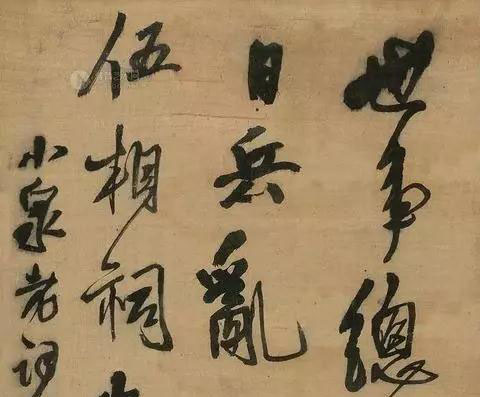 世事總
日兵亂
伍相祠
小泉老詞